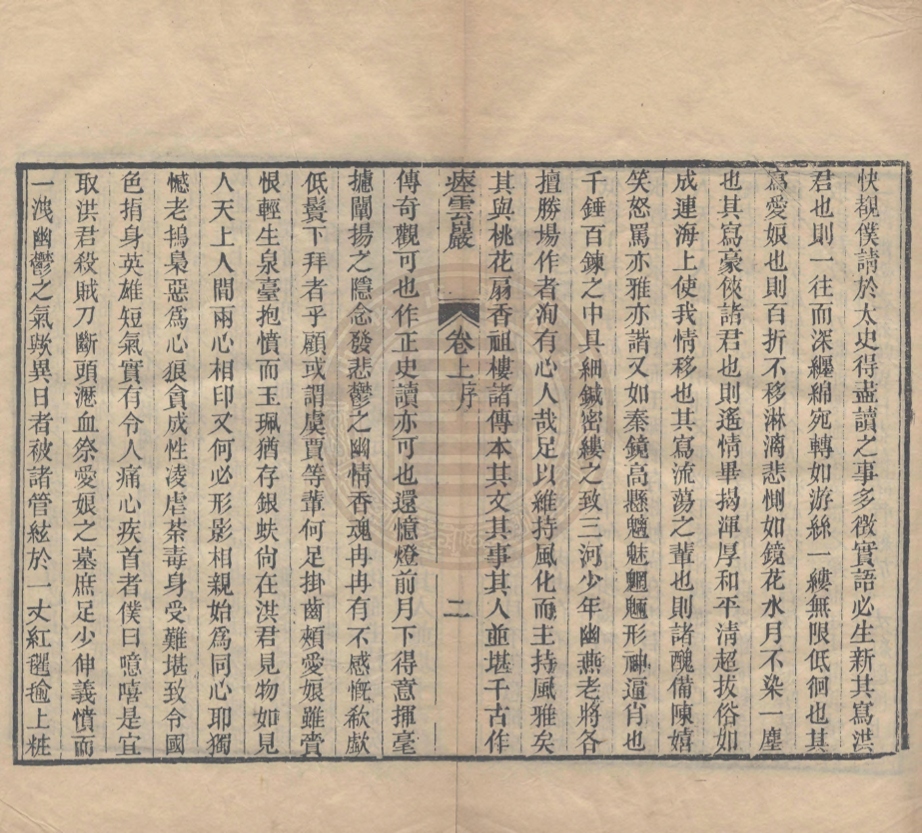 快覩僕請於太史得盡讀之事多徵實語必生新其寫洪
君也則一往而深纏綿宛轉如游絲一縷無限低徊也其
寫愛娘也則百折不移淋漓悲惻如鏡花水月不染一塵
也其寫豪俠諸君也則遙情畢揭渾厚和平淸超拔俗如
成連海上使我情移也其寫流蕩之輩也則諸醜備陳嬉
笑怒罵亦雅亦諧又如秦鏡高懸魑魅魍魎形神逼肖也
千錘百鍊之中具細鍼密縷之致三河少年幽燕老將各
擅勝場作者洵有心人哉足以維持風化而主持風雅矣
其與桃花扇香祖樓諸傳本其文其事其人並堪千古作
瘞雲巖 卷上序 二
傳奇觀可也作正史讀亦可也還憶燈前月下得意揮毫
攄闡揚之隱念發悲鬱之幽情香魂冉冉有不感慨欷歔
低鬟下拜者乎顧或謂虞賈等輩何足掛齒頰愛娘雖賫
恨輕生泉臺抱憤而玉珮猶存銀蚨尙在洪君見物如見
人天上人間兩心相印又何必形影相親始爲同心耶獨
憾老鴇梟惡爲心狠貪成性凌虐荼毒身受難堪致令國
色捐身英雄短氣實有令人痛心疾首者僕曰噫嘻是宜
取洪君殺賊刀斷頭瀝血祭愛娘之墓庶足少伸義憤而
一洩幽鬱之氣歟異日者被諸管絃於一丈紅氍毹上粧